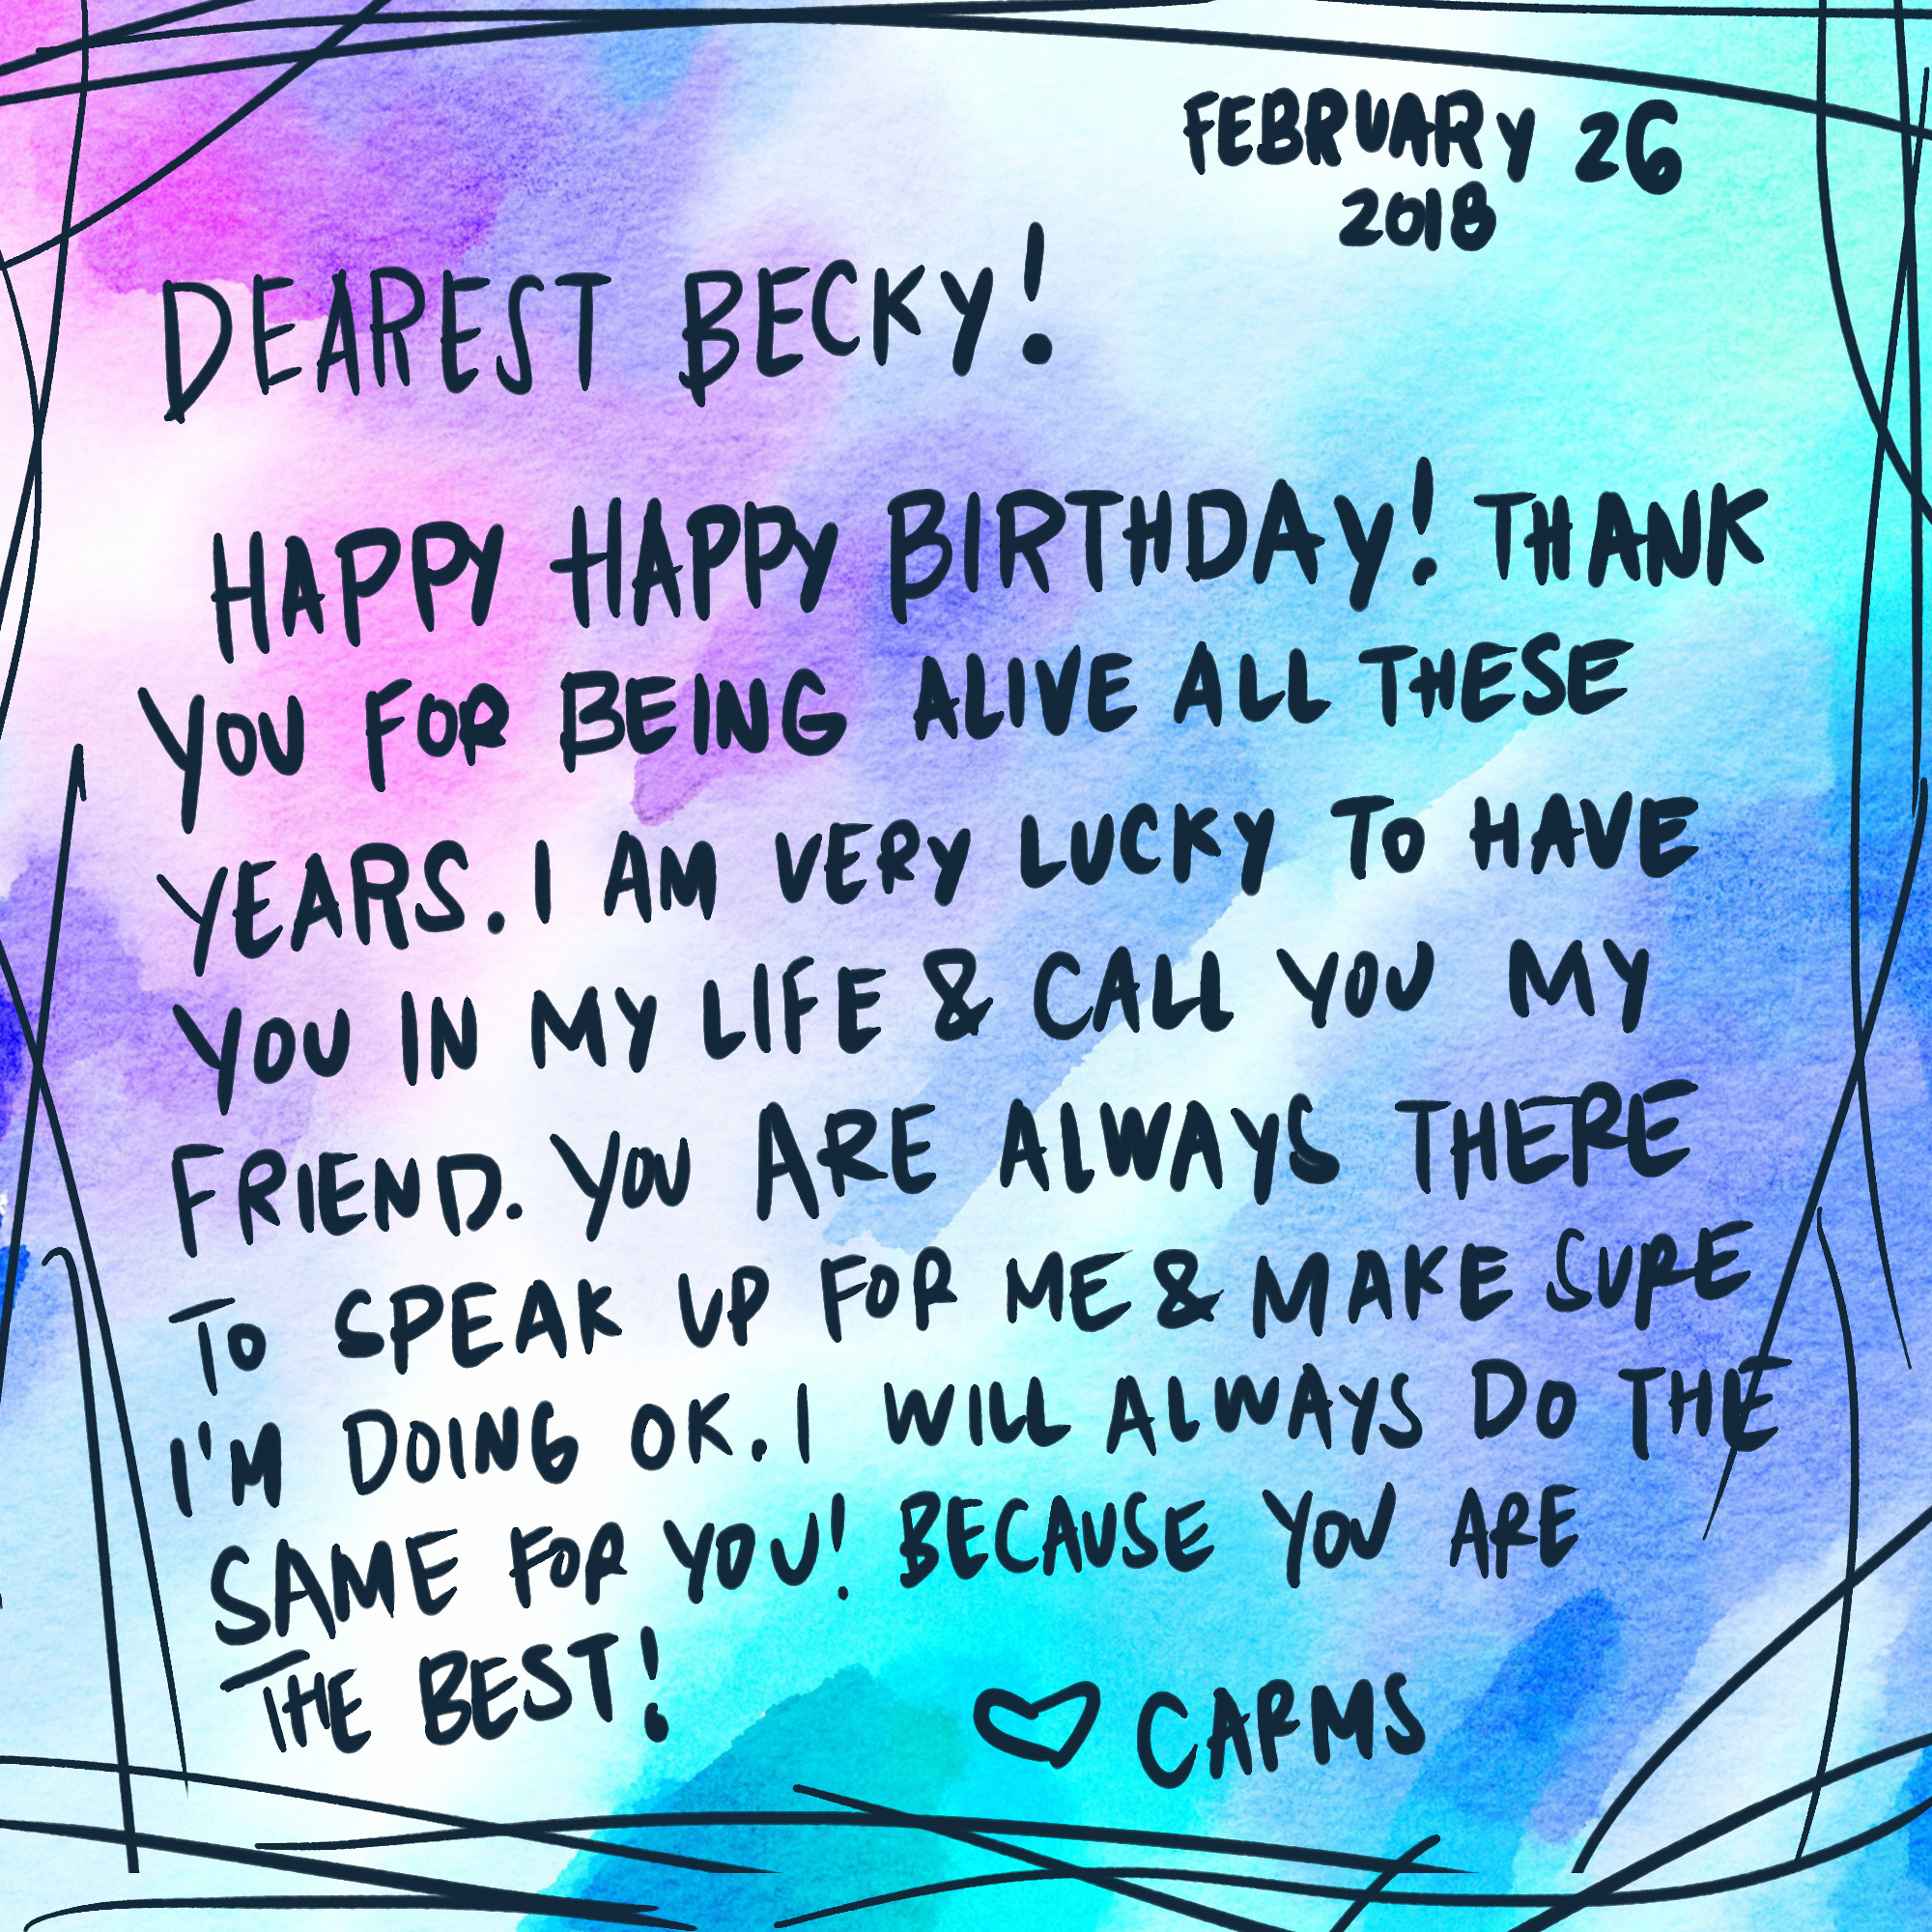 FEBRUARY 26
2018
DEAREST BECKY!
HAPPY HAPPY BIRTHDAY! THANK
YOU FOR BEING ALIVE ALL THESE
YEARS. I AM VERY LUCKY TO HAVE
YOU IN MY LIFE & CALL YOU MY
FRIEND. YOU ARE ALWAYS THERE
TO SPEAK UP FOR ME & MAKE SURE
I'M DOING OK. I WILL ALWAYS DO THE
SAME FOR YOU! BECAUSE YOU ARE
THE BEST!
♡ CARMS